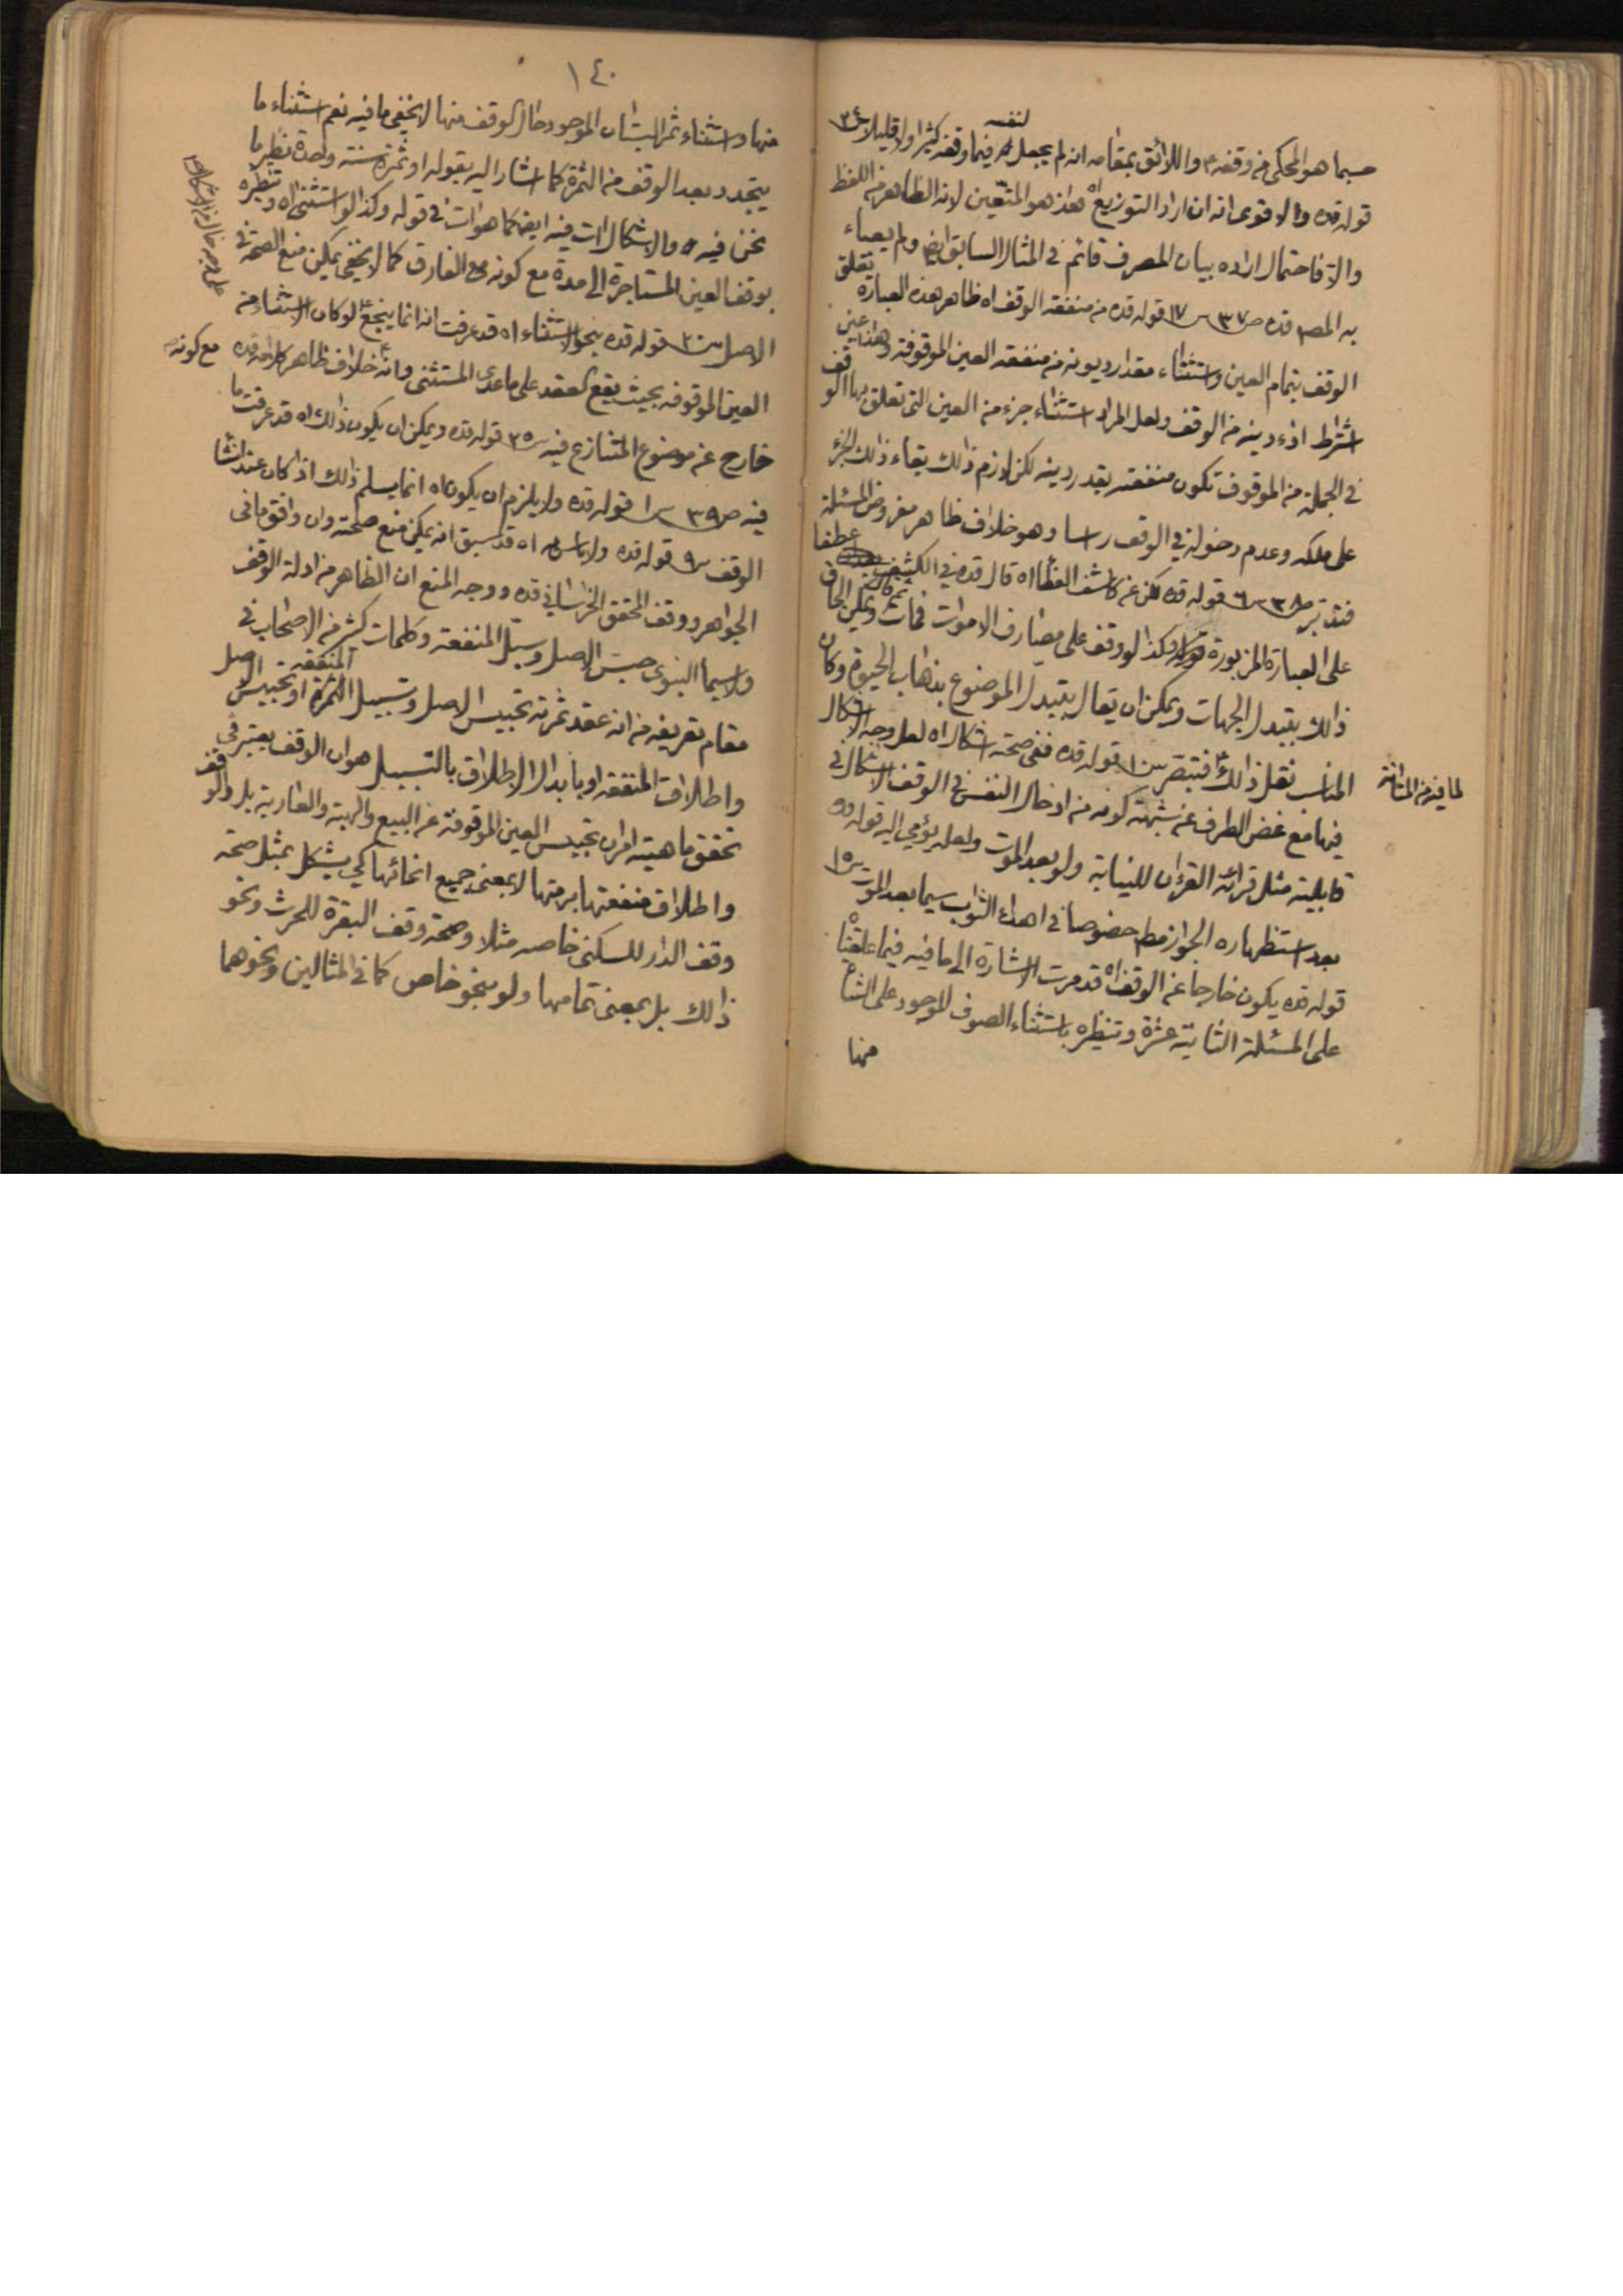 حسبما هو المحكى من وقفه ع واللائق بمقامه انه لم يجعل لنفسه فيما وقفه كثيرا ولا قليلا س٢٤
قوله قده والاقوى انه ان اراد التوزيع اه هذا هو المتعين لانه الظاهر من اللفظ
والا فاحتمال اراده بيان المصرف قائم في المثال السابق ايضا ولم يعباء
به المصـ قده ص٣٧ س١٧ قوله قده من منفعة الوقف اه ظاهر هذه العبارة تعلق
الوقف بتمام العين واستثناء مقدار ديونه من منفعة العين الموقوفة وهذا عين
اشتراط اداء دينه من الوقف ولعل المراد استثناء جزء من العين التى تعلق بها الوقف
في الجملة من الموقوف تكون منفعته بقدر دينه لكن لازم ذالك بقاء ذالك الجزء
على ملكه وعدم دخوله في الوقف رسا وهو خلاف ظاهر مفروض المسئلة
فتدبر ص٣٨ س٦ قوله قده لكن عن كاشف الغطا اه قال قده في الكشف عطفا
على العبارة المزبورة وكذا لو وقف على مصارف الاموات فمات ويمكن الحاق
ذالك بتبدل الجهات ويمكن ان يقال بتبدل الموضوع بذهاب الحيوة وكان
المناسب نقل ذالك فتبصر س١٠ قوله قده ففى صحته اشكال اه لعل وجه الاشكال
لما فيه من المتانة
فيها مع غض الطرف عن شبهة كونه من ادخال النفس في الوقف الاشكال في
قابلية مثل قرائة القرءان للنيابة ولو بعد الموت ولعله يؤمي اليه قوله قده
بعد استظهاره الجواز مطم خصوصا في اهداء الثواب سيما بعد الموت س١٥
قوله قده يكون خارجا عن الوقف اه قد مرت الاشارة الى ما فيه فيما علقناه
على المسئلة الثانية عشرة وتنظيره باستثناء الصوف الموجود على الشاة
منها
١٤٠
منها واستثناء ثمر البستان الموجود حال الوقف منها لا يخفى ما فيه نعم استثناء ما
يتجدد بعد الوقف من الثمرة كما اشار اليه بقوله او ثمرة سنة واحدة نظير ما
نحن فيه والاشكال ات فيه ايضا كما هو ات في قوله وكذا لو استثنى اه وتنظيره
بوقف العين المستاجرة الى مدة مع كونه مع الفارق كما لا يخفى يمكن منع الصحة في
الاصل س٢٠ قوله قده بنحو الاستثناء اه قد عرفت انه انما ينجع لو كان الاستثناء من
العين الموقوفه بحيث يقع العقد على ما عدى المستثنى وانه خلاف ظاهر كلامه قده مع كونه
خارج عن موضوع المتنازع فيه س٢٥ قوله قده ويمكن ان يكون ذالك اه قد عرفت ما
فيه ص٣٩ س١ قوله قده ولا يلزم ان يكون اه انما يسلم ذالك اذا كان عند انشا
الوقف س٩ قوله قده ولا باس به اه قد سبق انه يمكن منع صحته وان وافق ما في
الجواهر ووقف المحقق الخراساني قده ووجه المنع ان الظاهر من ادلة الوقف
ولا سيما النبوى حبس الاصل وسبل المنفعة وكلمات كثير من الاصحاب في
مقام تعريفه من انه عقد ثمرته تحبيس الاصل وتسبيل المنفعة الثمرة او تحبيس الاصل
واطلاق المنفعة او بابدال الاطلاق بالتسبيل هو ان الوقف يعتبر في
تحقق ماهيته امران تحبيس العين الموقوفة عن البيع والهبة والعارية بل والوقف
واطلاق منفعتها برمتها لا بمعنى جميع انحائها كي يشكل بمثل صحة
وقف الدار للسكنى خاصه مثلا وصحة وقف البقرة للحرث ونحو
ذالك بل بمعنى تمامها ولو بنحو خاص كما في المثالين ونحوهما